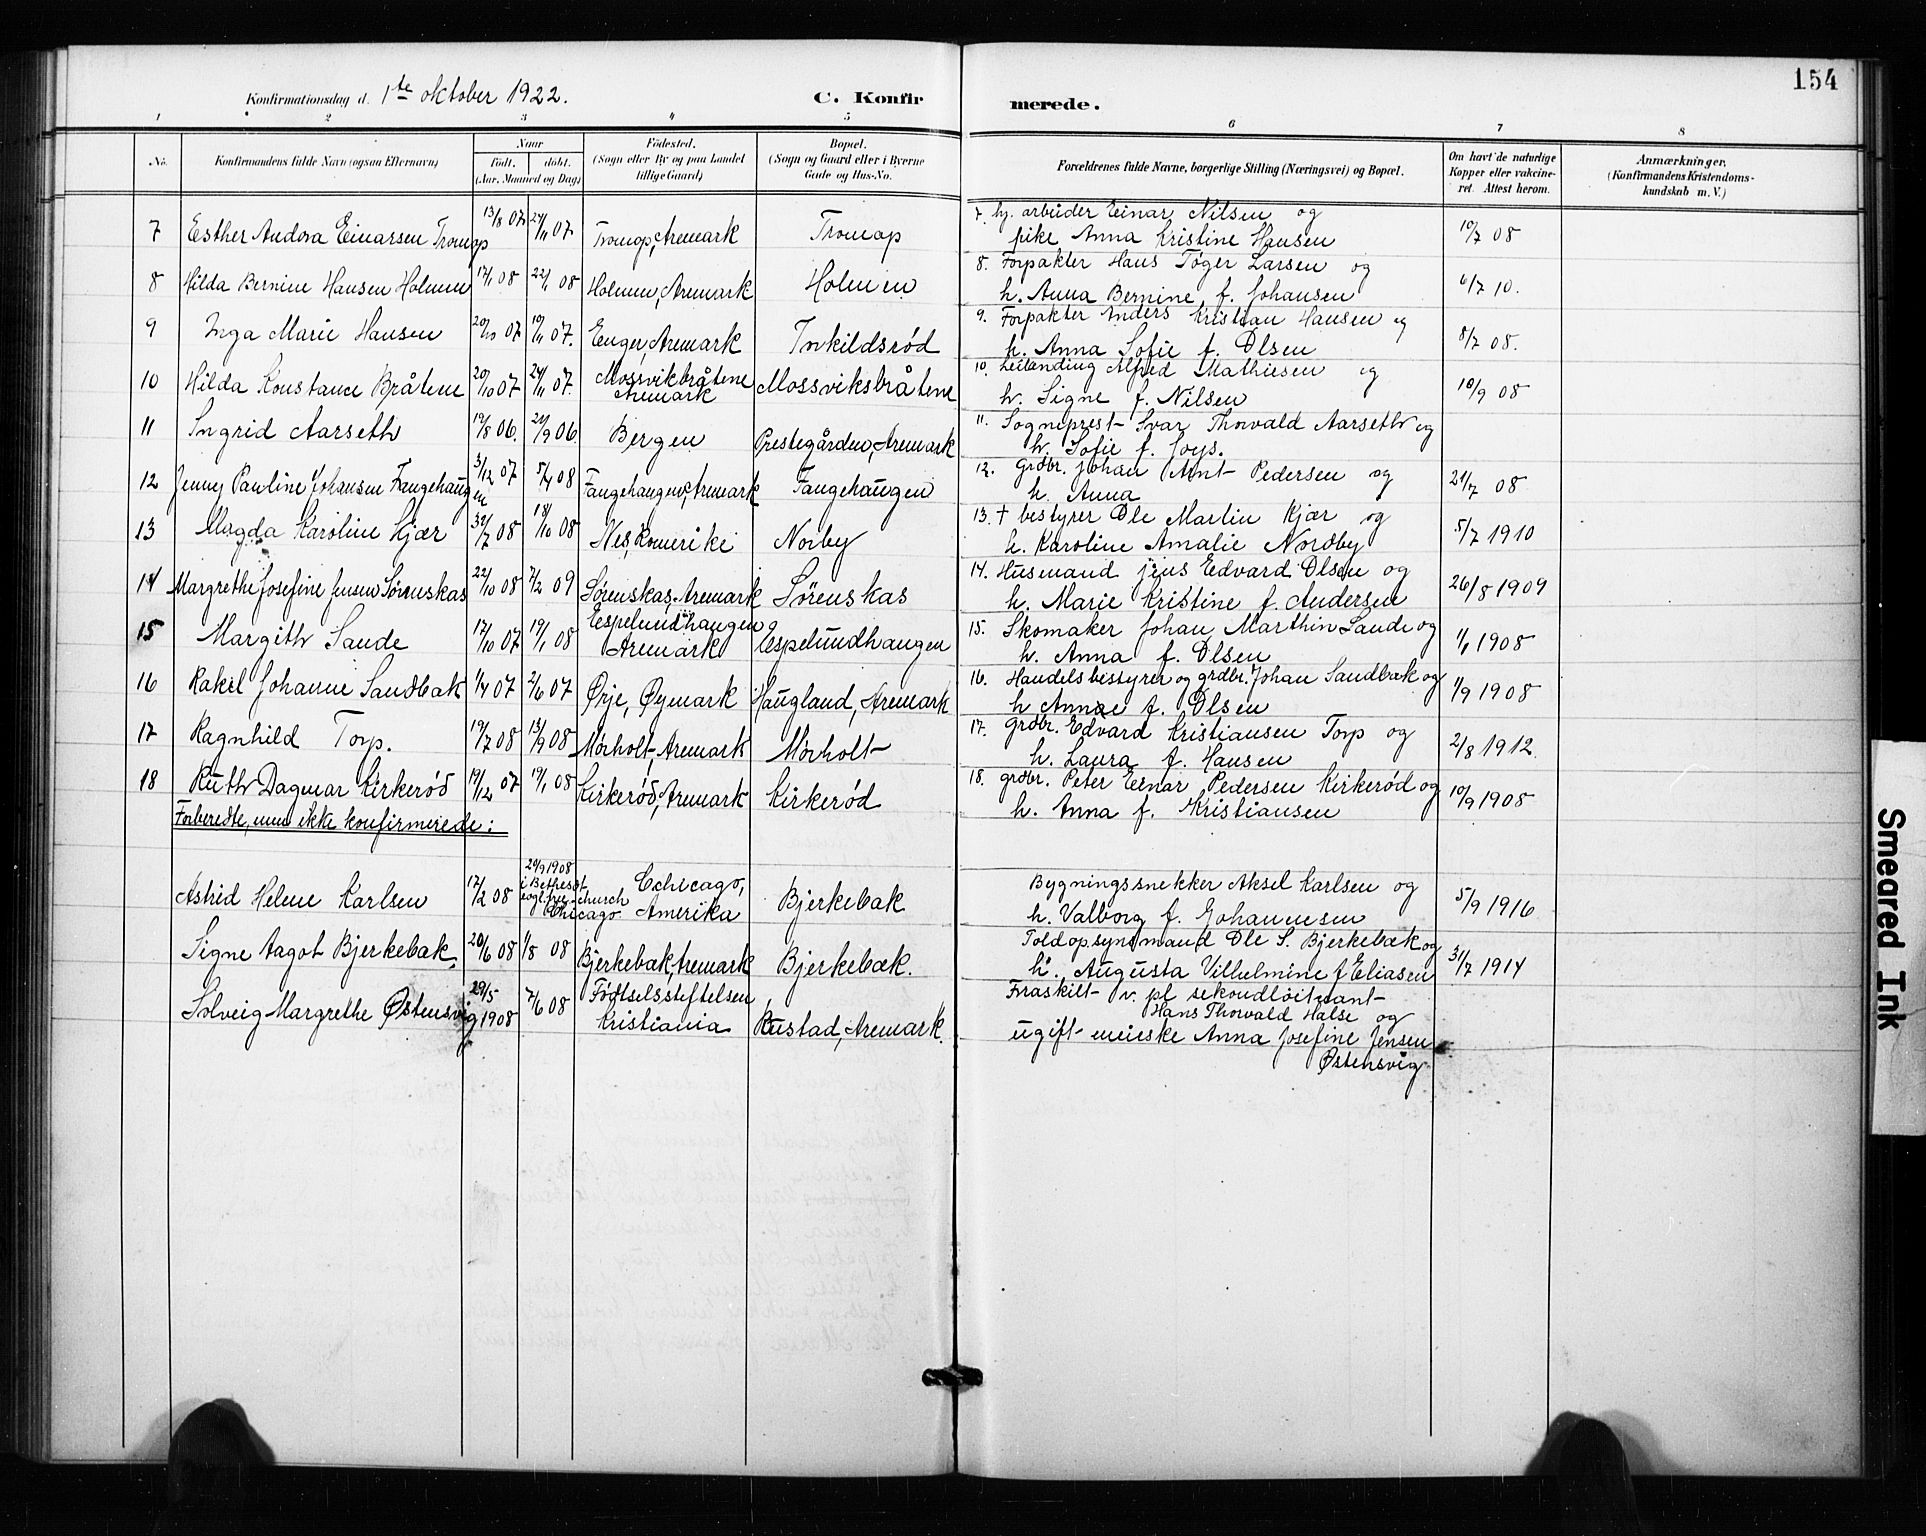 154
Konfirmationsdag d. 1ste oktober 1922.
C. Konfirmerede.
1 2 3 4 5 6 7 8
No. Konfirmandens fulde Navn (ogsaa Efternavn) Naar født, døbt. (Aar, Maaned og Dag) Fødested. (Sogn eller By og paa Landet tillige Gaard) Bopæl. (Sogn og Gaard eller i Byerne Gade og Hus-No. Forældrenes fulde Navne, borgerlige Stilling (Næringsvei) og Bopæl. Om havt de naturlige Kopper eller vakcineret. Attest herom. Anmærkninger, (Konfirmandens Kristendomskundskab m. V.)
7 Esther Andora Einarsen Tromop 13/8 07 24/11 07 Tromop, Aremark Tromop 7. hj. arbeider Einar Nilsen og
pike Anna Kristine Hansen 10/7 08
8 Hilda Bernine Hansen Holmen 17/1 08 22/1 08 Holmen, Aremark Holmen 8. Forpakter Hans Tøger Larsen og
h. Anna Bernine f. Johansen 6/7 10.
9 Inga Marie Hansen 20/10 07 10/11 07. Enger, Aremark Torkildsrød 9. Forpakter Anders Kristian Hansen og
h. Anna Sofie f. Olsen 8/7 08.
10 Hilda Konstance Bråtene 20/10 07 24/11 07. Mossvikbråtene Aremark Mossviksbråtene 10. Leilending Alfred Mathiesen og
h. Signe f. Nilsen 10/9 08
11 Ingrid Aarseth 19/8 06. 20/9 06. Bergen Prestegården, Aremark 11. Sogneprest Ivar Thorvald Aarseth og
h. Sofie f. Joys.
12 Jenny Pauline Johansen Fangehaugen 3/12 07 5/4 08 Fangehaugen, Aremark Fangehaugen 12. Grdbr. Johan Ant. Pedersen og
h. Anna 21/7 08
13 Magda Karoline Kjær 30/7 08 18/10 08 Nes, Romerike Norby 13. † bestyrer Ole Martin Kjær og
h. Karoline Amalie Nordby 5/7 1910
14 Margrethe Josefine Jensen Sørenskas 22/10 08 7/2 09 Sørenskas, Aremark Sørenskas 14. Husmand Jens Edvard Olsen og
h. Marie Kristine f. Andersen 26/8 1909
15 Margith Sande 17/10 07 19/1 08 Espelundhaugen Aremark Espelundhaugen 15. Skomaker Johan Marthin Sande og
h. Anna f. Olsen 1/1 1908
16 Rakel Johanne Sandbæk 1/4 07 2/6 07 Ørje, Øymark Haugland, Aremark 16. Handelsbestyrer og grdbr. Johan Sandbæk og
h Anna f. Olsen 1/9 1908
17 Ragnhild Torp. 19/7 08 13/9 08 Mørholt, Aremark Mørholt 17. Grdbr. Edvard Kristiansen Torp og
h. Laura f. Hansen 2/8 1912
18 Ruth Dagmar Kirkerød 19/12 07 19/1 08 Kirkerød, Aremark Kirkerød 18. Grdbr. Peter Einar Pedersen Kirkerød og
h. Anna f. Kristiansen 10/9 1908
Forberedte, men ikke konfirmerede:
Astrid Helene Karlsen 17/2 08 20/9 1908 i church Chicago Chicago, Amerika Bjerkebæk Bygningssnekker Aksel Karlsen og
h. Valborg f. Johannesen 5/9 1916
Signe Aagot Bjerkebæk. 20/6 08 1/8 08 Bjerkebæk, Aremark Bjerkebæk. Toldopsynsmand Ole S. Bjerkebæk og
h. Augusta Vilhelmine f Eliasen 31/7 1914
Solveig Margrethe Østensvig 29/5 1908 7/6 08 Fødselsstiftelsen Kristiania Bustad, Aremark. Fraskilt v. pl sekondløitnant
Hans Thorvald Halse og
ugift meieske Anna Josefine Jensen
Østensvig
Smeared Ink